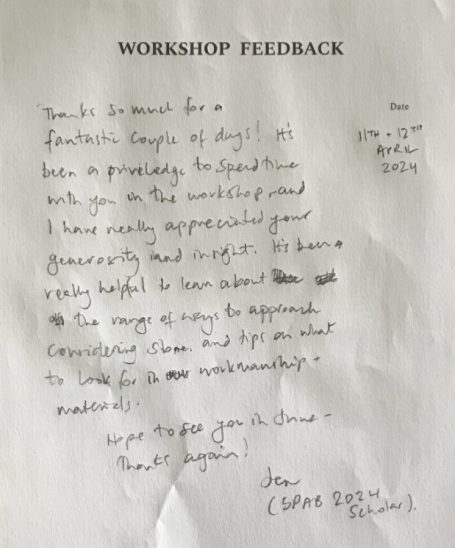 WORKSHOP FEEDBACK
Date
11TH + 12TH
APRIL
2024
Thanks so much for a
fantastic couple of days! It's
been a priveledge to spend time
with you in the workshop, and
I have really appreciated your
generosity and insight. It's been
really helpful to learn about
the range of ways to approach
considering stone, and tips on what
to look for in workmanship +
materials.
Hope to see you in June -
Thanks again!
Jen
(SPAB 2024
Scholar).